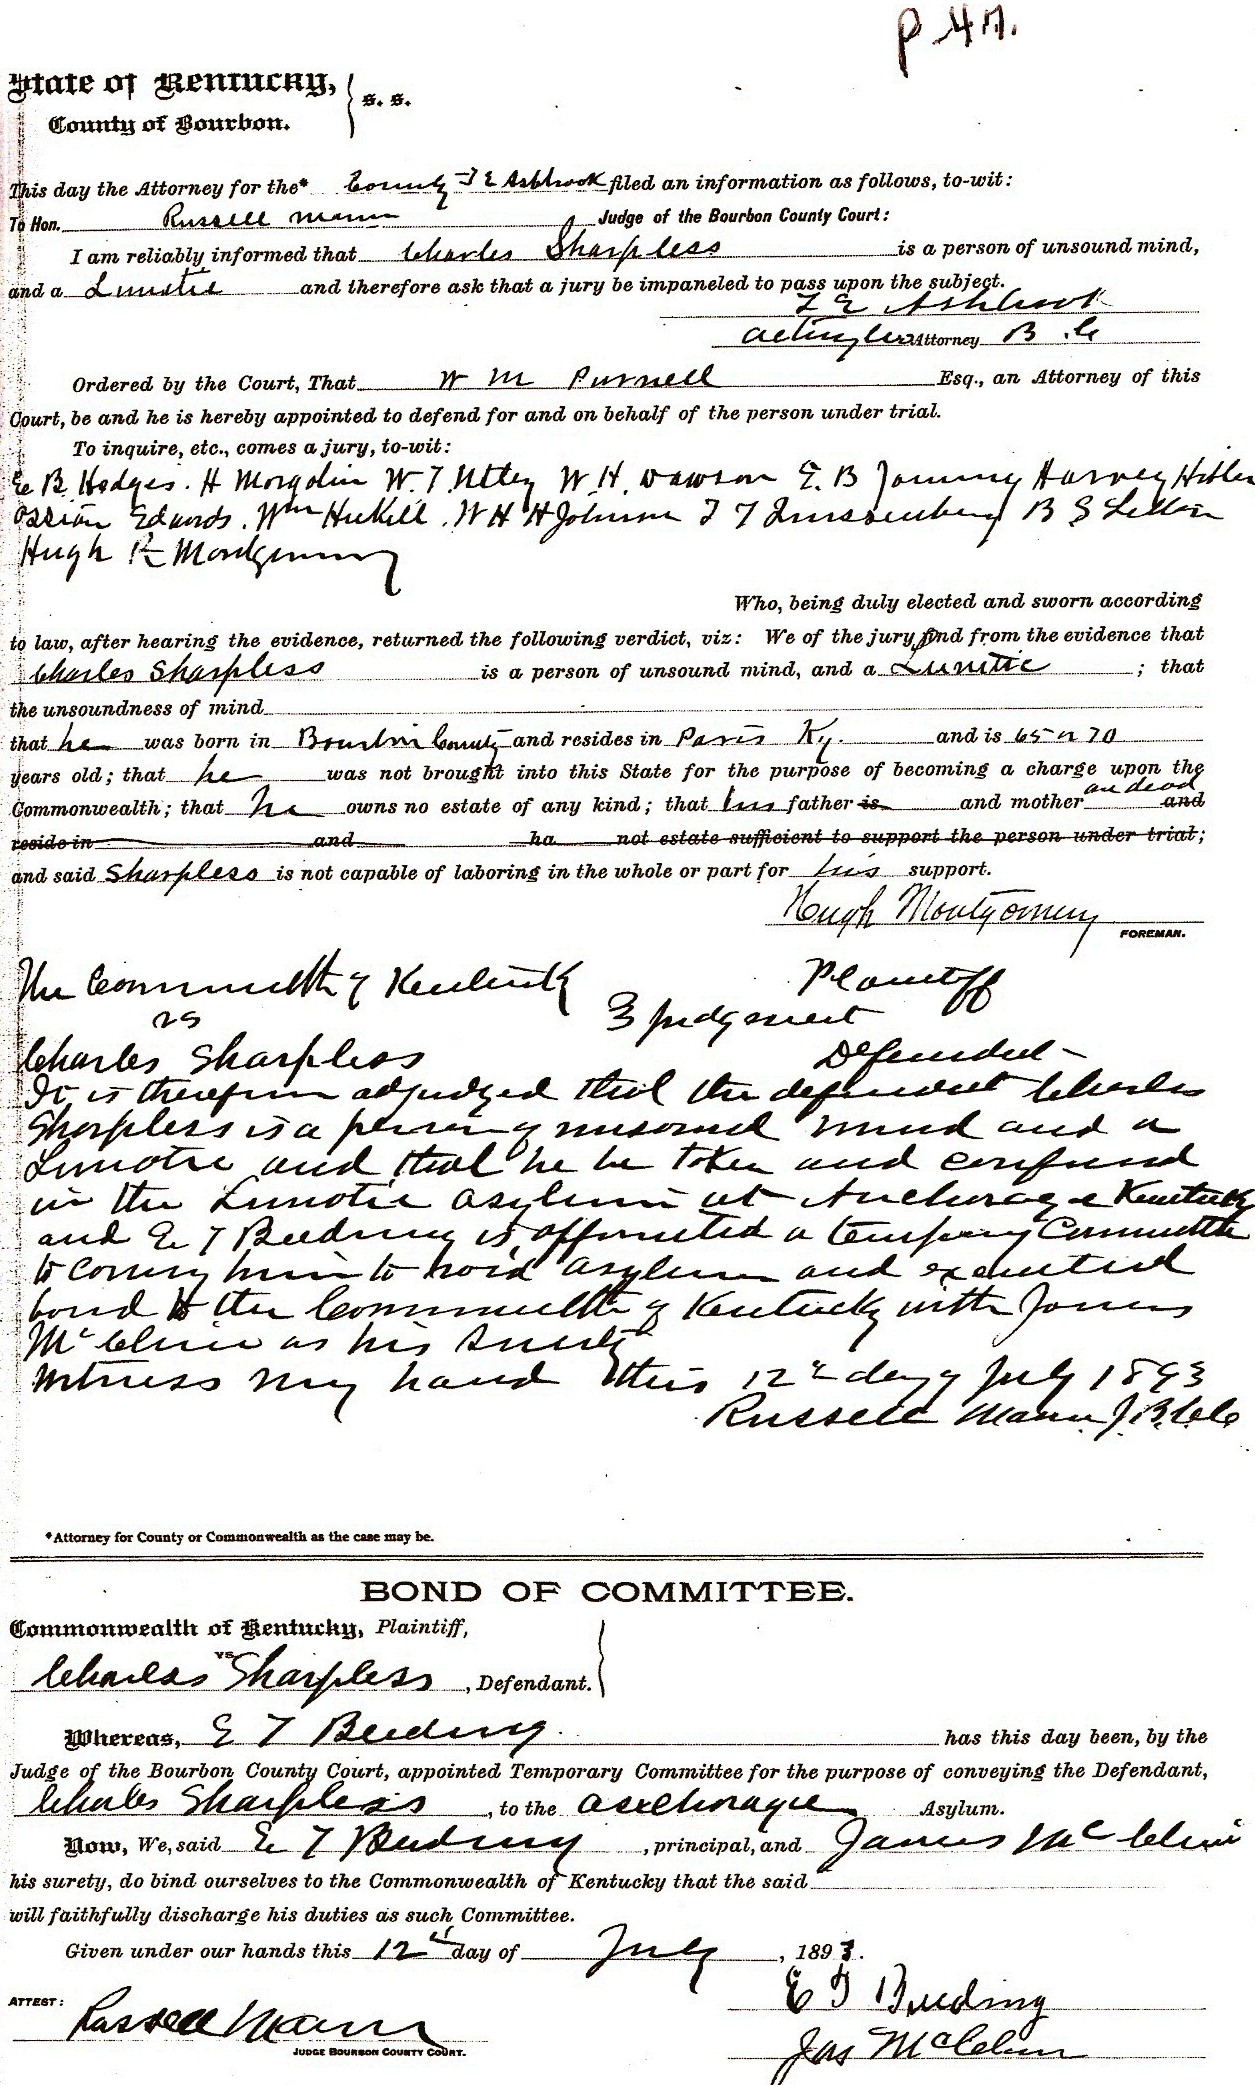 P 47.
State of Kentucky, } s. s.
County of Bourbon.
This day the Attorney for the* County T E Ashbrook filed an information as follows, to-wit:
To Hon. Russell Mann Judge of the Bourbon County Court:
I am reliably informed that Charles Sharpless is a person of unsound mind,
and a Lunatic and therefore ask that a jury be impaneled to pass upon the subject.
T E Ashbrook
Acting Attorney B. C
Ordered by the Court, That W M Purnell Esq., an Attorney of this
Court, be and he is hereby appointed to defend for and on behalf of the person under trial.
To inquire, etc., comes a jury, to-wit:
E B. Hodges. H Morgolin W. T. Utley W. H. Dawson E. B January Harvey Hibler
Ossian Edwards. Wm Hukill. W H H Johnson T T B S
Hugh R Montgomery
Who, being duly elected and sworn according
to law, after hearing the evidence, returned the following verdict, viz: We of the jury find from the evidence that
Charles Sharpless is a person of unsound mind, and a Lunatic ; that
the unsoundness of mind
that he was born in Bourbon County and resides in Paris Ky. and is 65 or 70
years old; that he was not brought into this State for the purpose of becoming a charge upon the
Commonwealth; that he owns no estate of any kind; that his father is and mother are dead and
reside in and ha not estate sufficient to support the person under trial;
and said Sharpless is not capable of laboring in the whole or part for his support.
Hugh Montgomery
FOREMAN.
The Commonwealth of Kentucky Plaintiff
vs } Judgment
Charles Sharpless Defendant
It is therefore adjudged that the defendant Charles
Sharpless is a person of unsound mind and a
Lunatic and that he be taken and confined
in the Lunatic asylum at Anchorage Kentucky
and E T Beeding is appointed a temporary Committee
to convey him to said asylum and executed
bond to the Commonwealth of Kentucky with James
McClure as his Surety
Witness my hand this 12th day of July 1893
Russell Mann J. B. C. C
*Attorney for County or Commonwealth as the case may be.
BOND OF COMMITTEE.
Commonwealth of Kentucky, Plaintiff,
vs
Charles Sharpless, Defendant.
Whereas, E T Beeding. has this day been, by the
Judge of the Bourbon County Court, appointed Temporary Committee for the purpose of conveying the Defendant,
Charles Sharpless, to the Anchorage Asylum.
Now, We, said E T Beeding, principal, and James McClure
his surety, do bind ourselves to the Commonwealth of Kentucky that the said
will faithfully discharge his duties as such Committee.
Given under our hands this 12th day of July, 1893.
E T Beeding
ATTEST: Russell Mann
JUDGE BOURBON COUNTY COURT.
Jas McClure